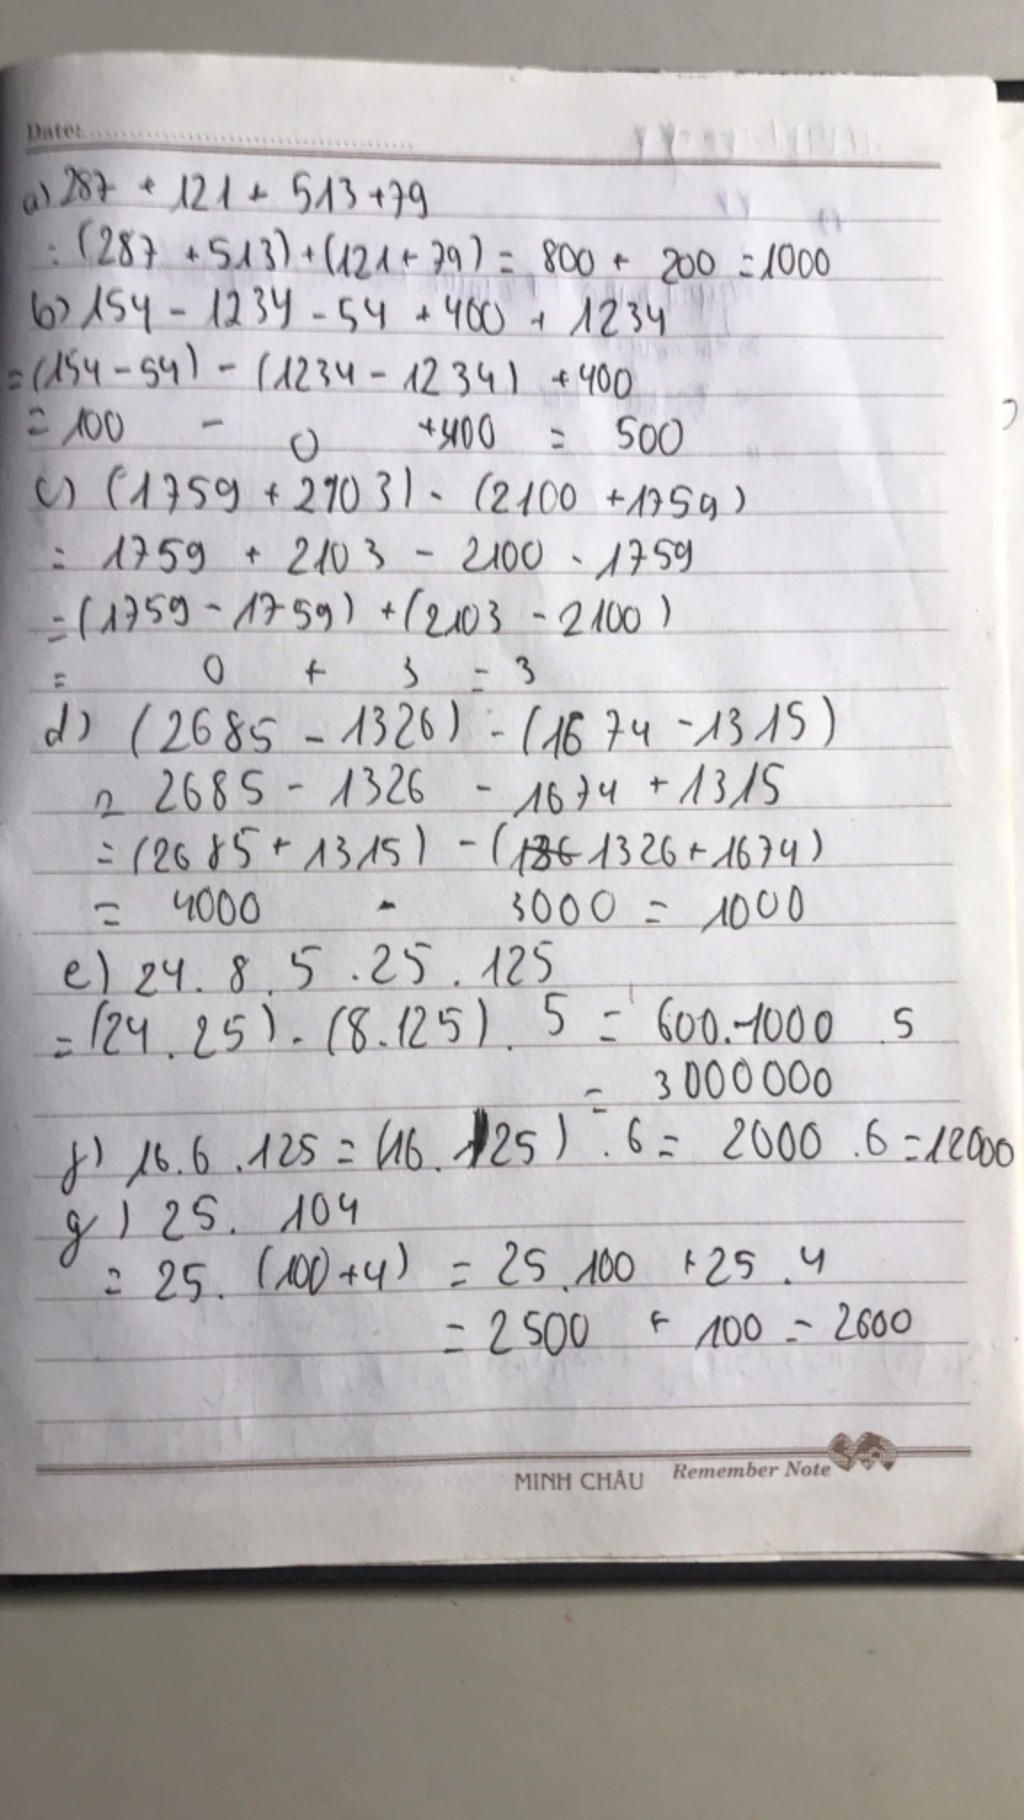 Date:
a) 287 + 121 + 513 + 79
= (287 + 513) + (121 + 79) = 800 + 200 = 1000
b) 154 - 1234 - 54 + 400 + 1234
= (154 - 54) - (1234 - 1234) + 400
= 100 - 0 + 400 = 500
c) (1759 + 2103) - (2100 + 1759)
= 1759 + 2103 - 2100 - 1759
= (1759 - 1759) + (2103 - 2100)
= 0 + 3 = 3
d) (2685 - 1326) - (1674 - 1315)
= 2685 - 1326 - 1674 + 1315
= (2685 + 1315) - (1326 + 1674)
= 4000 - 3000 = 1000
e) 24 . 8 . 5 . 25 . 125
= (24 . 25) . (8 . 125) . 5 = 600 . 1000 . 5
= 3000000
f) 16 . 6 . 125 = (16 . 125) . 6 = 2000 . 6 = 12000
g) 25 . 104
= 25 . (100 + 4) = 25 . 100 + 25 . 4
= 2500 + 100 = 2600
MINH CHÂU Remember Note